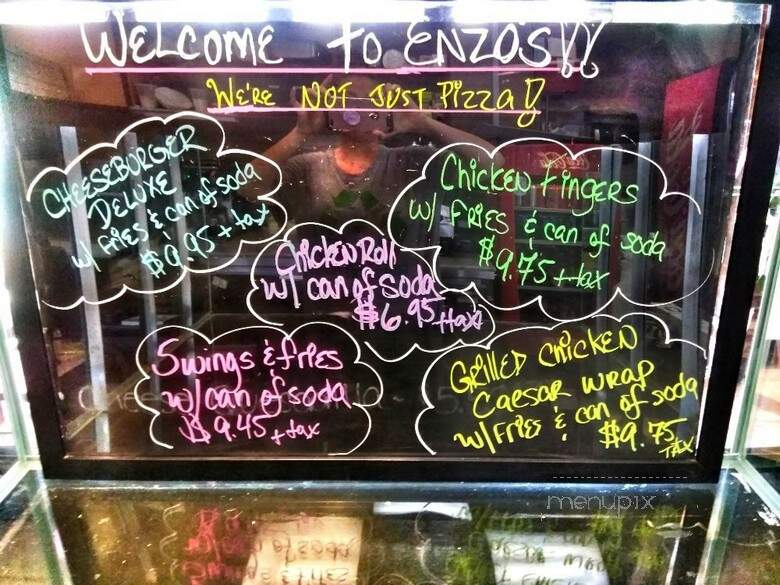 WELCOME TO ENZO'S!!
WE'RE NOT JUST PIZZA!
CHEESEBURGER
DELUXE
w/ FRIES & can of soda
$9.95 + tax
Chicken Fingers
w/ FRIES & can of soda
$9.75 + tax
Chicken Roll
w/ can of soda
$6.95 +tax
5 wings & fries
w/ can of soda
$9.45 + tax
GRILLED CHICKEN
CAESAR WRAP
w/ FRIES & can of soda
$9.75
TAX
menupix